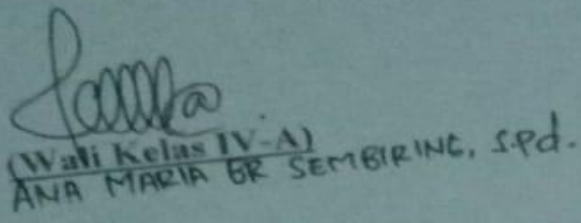 (Wali Kelas IV-A)
ANA MARIA BR SEMBIRING, S.Pd.